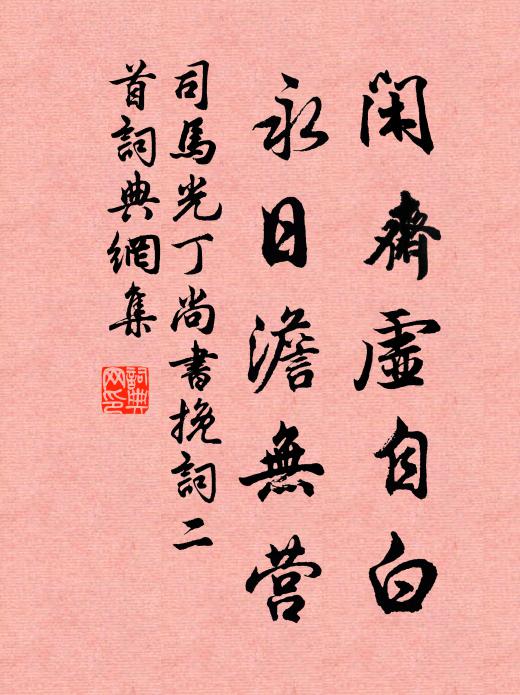 闲齋虛自白
永日澹無营
司馬光丁尚書挽詞二
首詞典網集
詞典网印